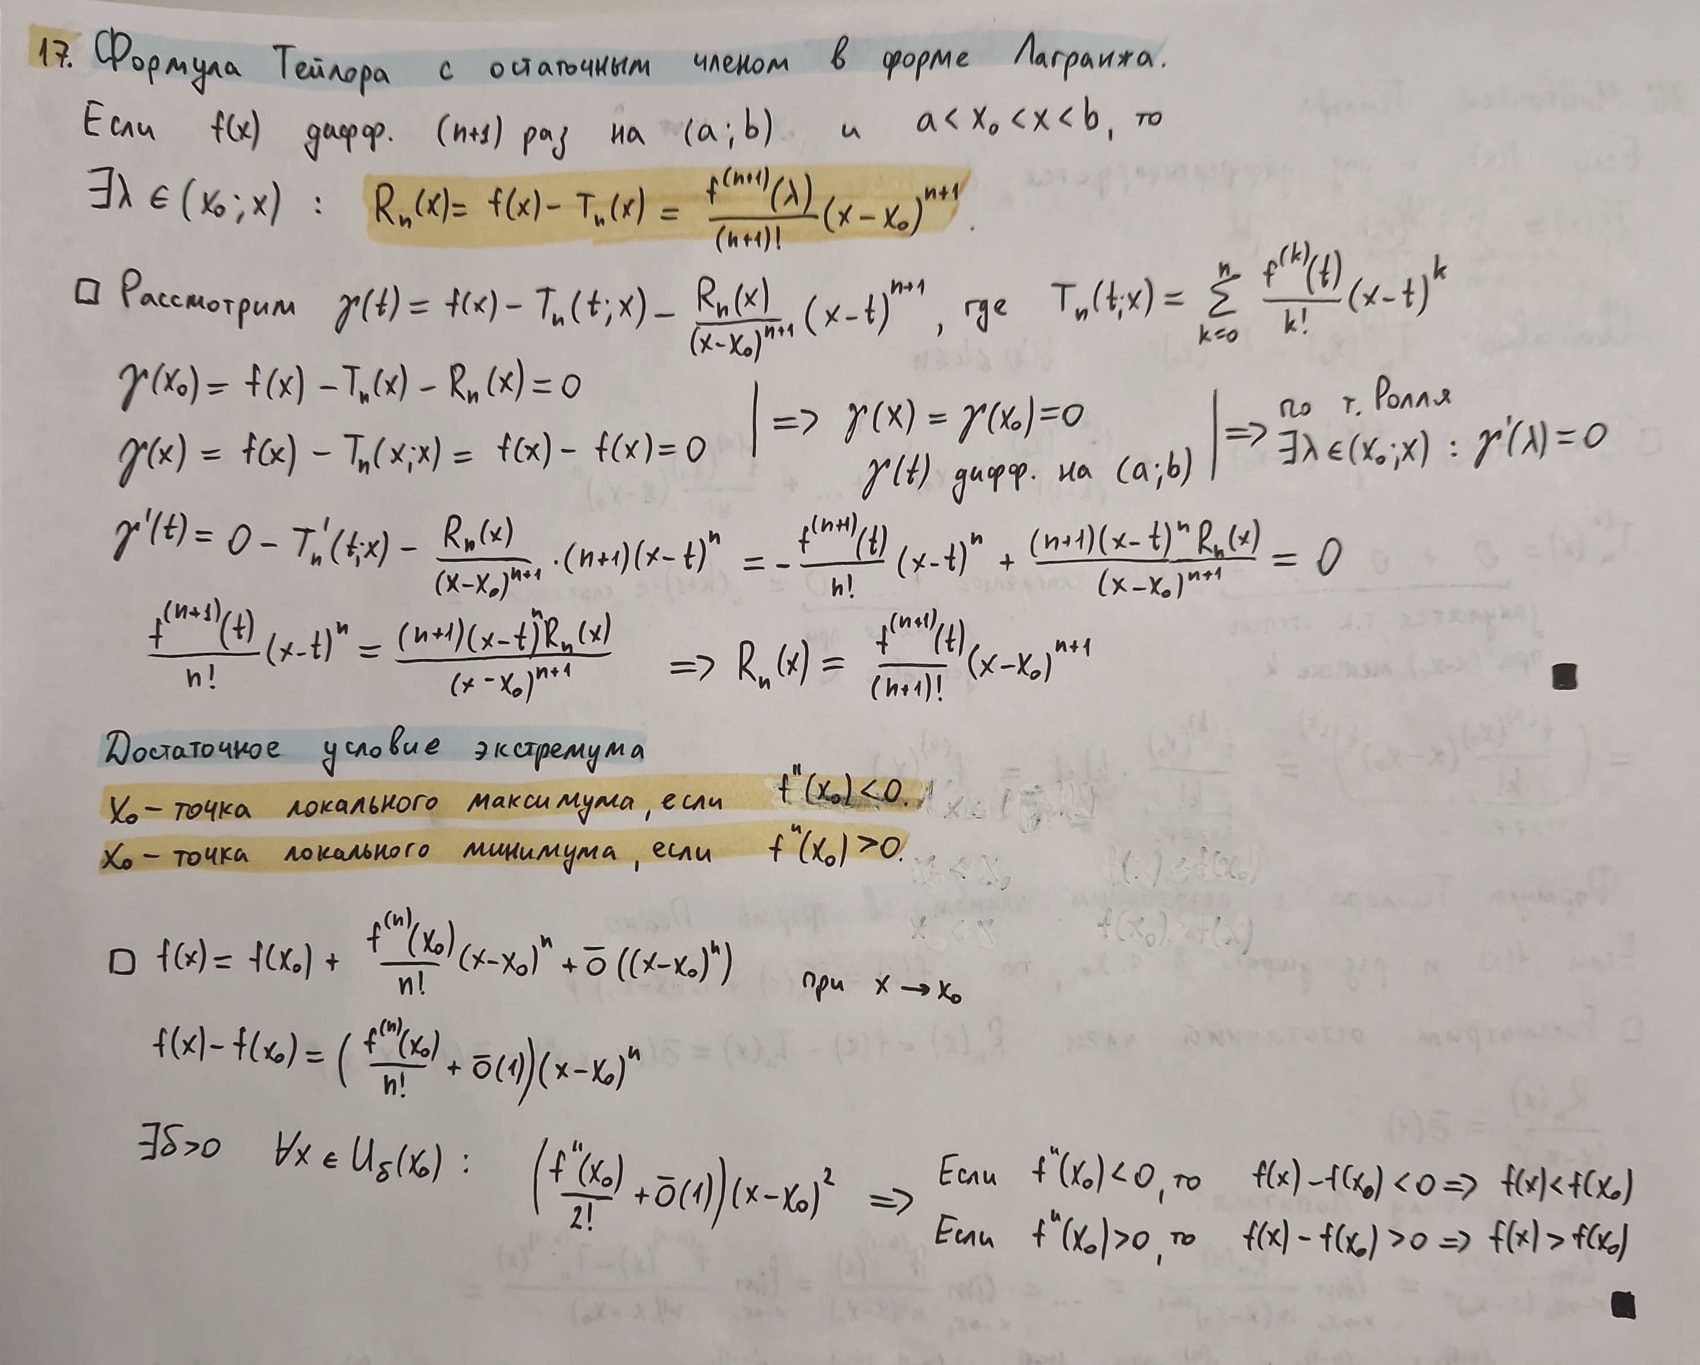 17. Формула Тейлора с остаточным членом в форме Лагранжа.
Если f(x) дифф. (n+1) раз на (a;b) и a<x₀<x<b, то
∃λ∈(x₀;x) : Rₙ(x)= f(x)−Tₙ(x) = f⁽ⁿ⁺¹⁾(λ)/(n+1)! (x−x₀)ⁿ⁺¹.
□ Рассмотрим γ(t) = f(x)−Tₙ(t;x)− Rₙ(x)/(x−x₀)ⁿ⁺¹ (x−t)ⁿ⁺¹, где Tₙ(t;x) = ∑ₖ₌₀ⁿ f⁽ᵏ⁾(t)/k! (x−t)ᵏ
γ(x₀) = f(x) −Tₙ(x) − Rₙ(x) = 0
γ(x) = f(x) − Tₙ(x;x) = f(x) − f(x) = 0
| => γ(x) = γ(x₀)=0
γ(t) дифф. на (a;b)
| => по т. Ролля
∃λ∈(x₀;x) : γ'(λ) = 0
γ'(t) = 0 − Tₙ'(t;x) − Rₙ(x)/(x−x₀)ⁿ⁺¹ · (n+1)(x−t)ⁿ = − f⁽ⁿ⁺¹⁾(t)/n! (x−t)ⁿ + (n+1)(x−t)ⁿ Rₙ(x)/(x−x₀)ⁿ⁺¹ = 0
f⁽ⁿ⁺¹⁾(t)/n! (x−t)ⁿ = (n+1)(x−t)ⁿRₙ(x)/(x−x₀)ⁿ⁺¹ => Rₙ(x) = f⁽ⁿ⁺¹⁾(t)/(n+1)! (x−x₀)ⁿ⁺¹ ■
Достаточное условие экстремума
x₀ − точка локального максимума, если f''(x₀)<0.
x₀ − точка локального минимума, если f''(x₀)>0.
□ f(x) = f(x₀) + f⁽ⁿ⁾(x₀)/n! (x−x₀)ⁿ + ō((x−x₀)ⁿ) при x→x₀
f(x)−f(x₀) = (f⁽ⁿ⁾(x₀)/n! + ō(1))(x−x₀)ⁿ
∃δ>0 ∀x∈U_δ(x₀) : (f''(x₀)/2! + ō(1))(x−x₀)² => Если f''(x₀)<0, то f(x)−f(x₀)<0 => f(x)<f(x₀)
Если f''(x₀)>0, то f(x)−f(x₀)>0 => f(x)>f(x₀)
■